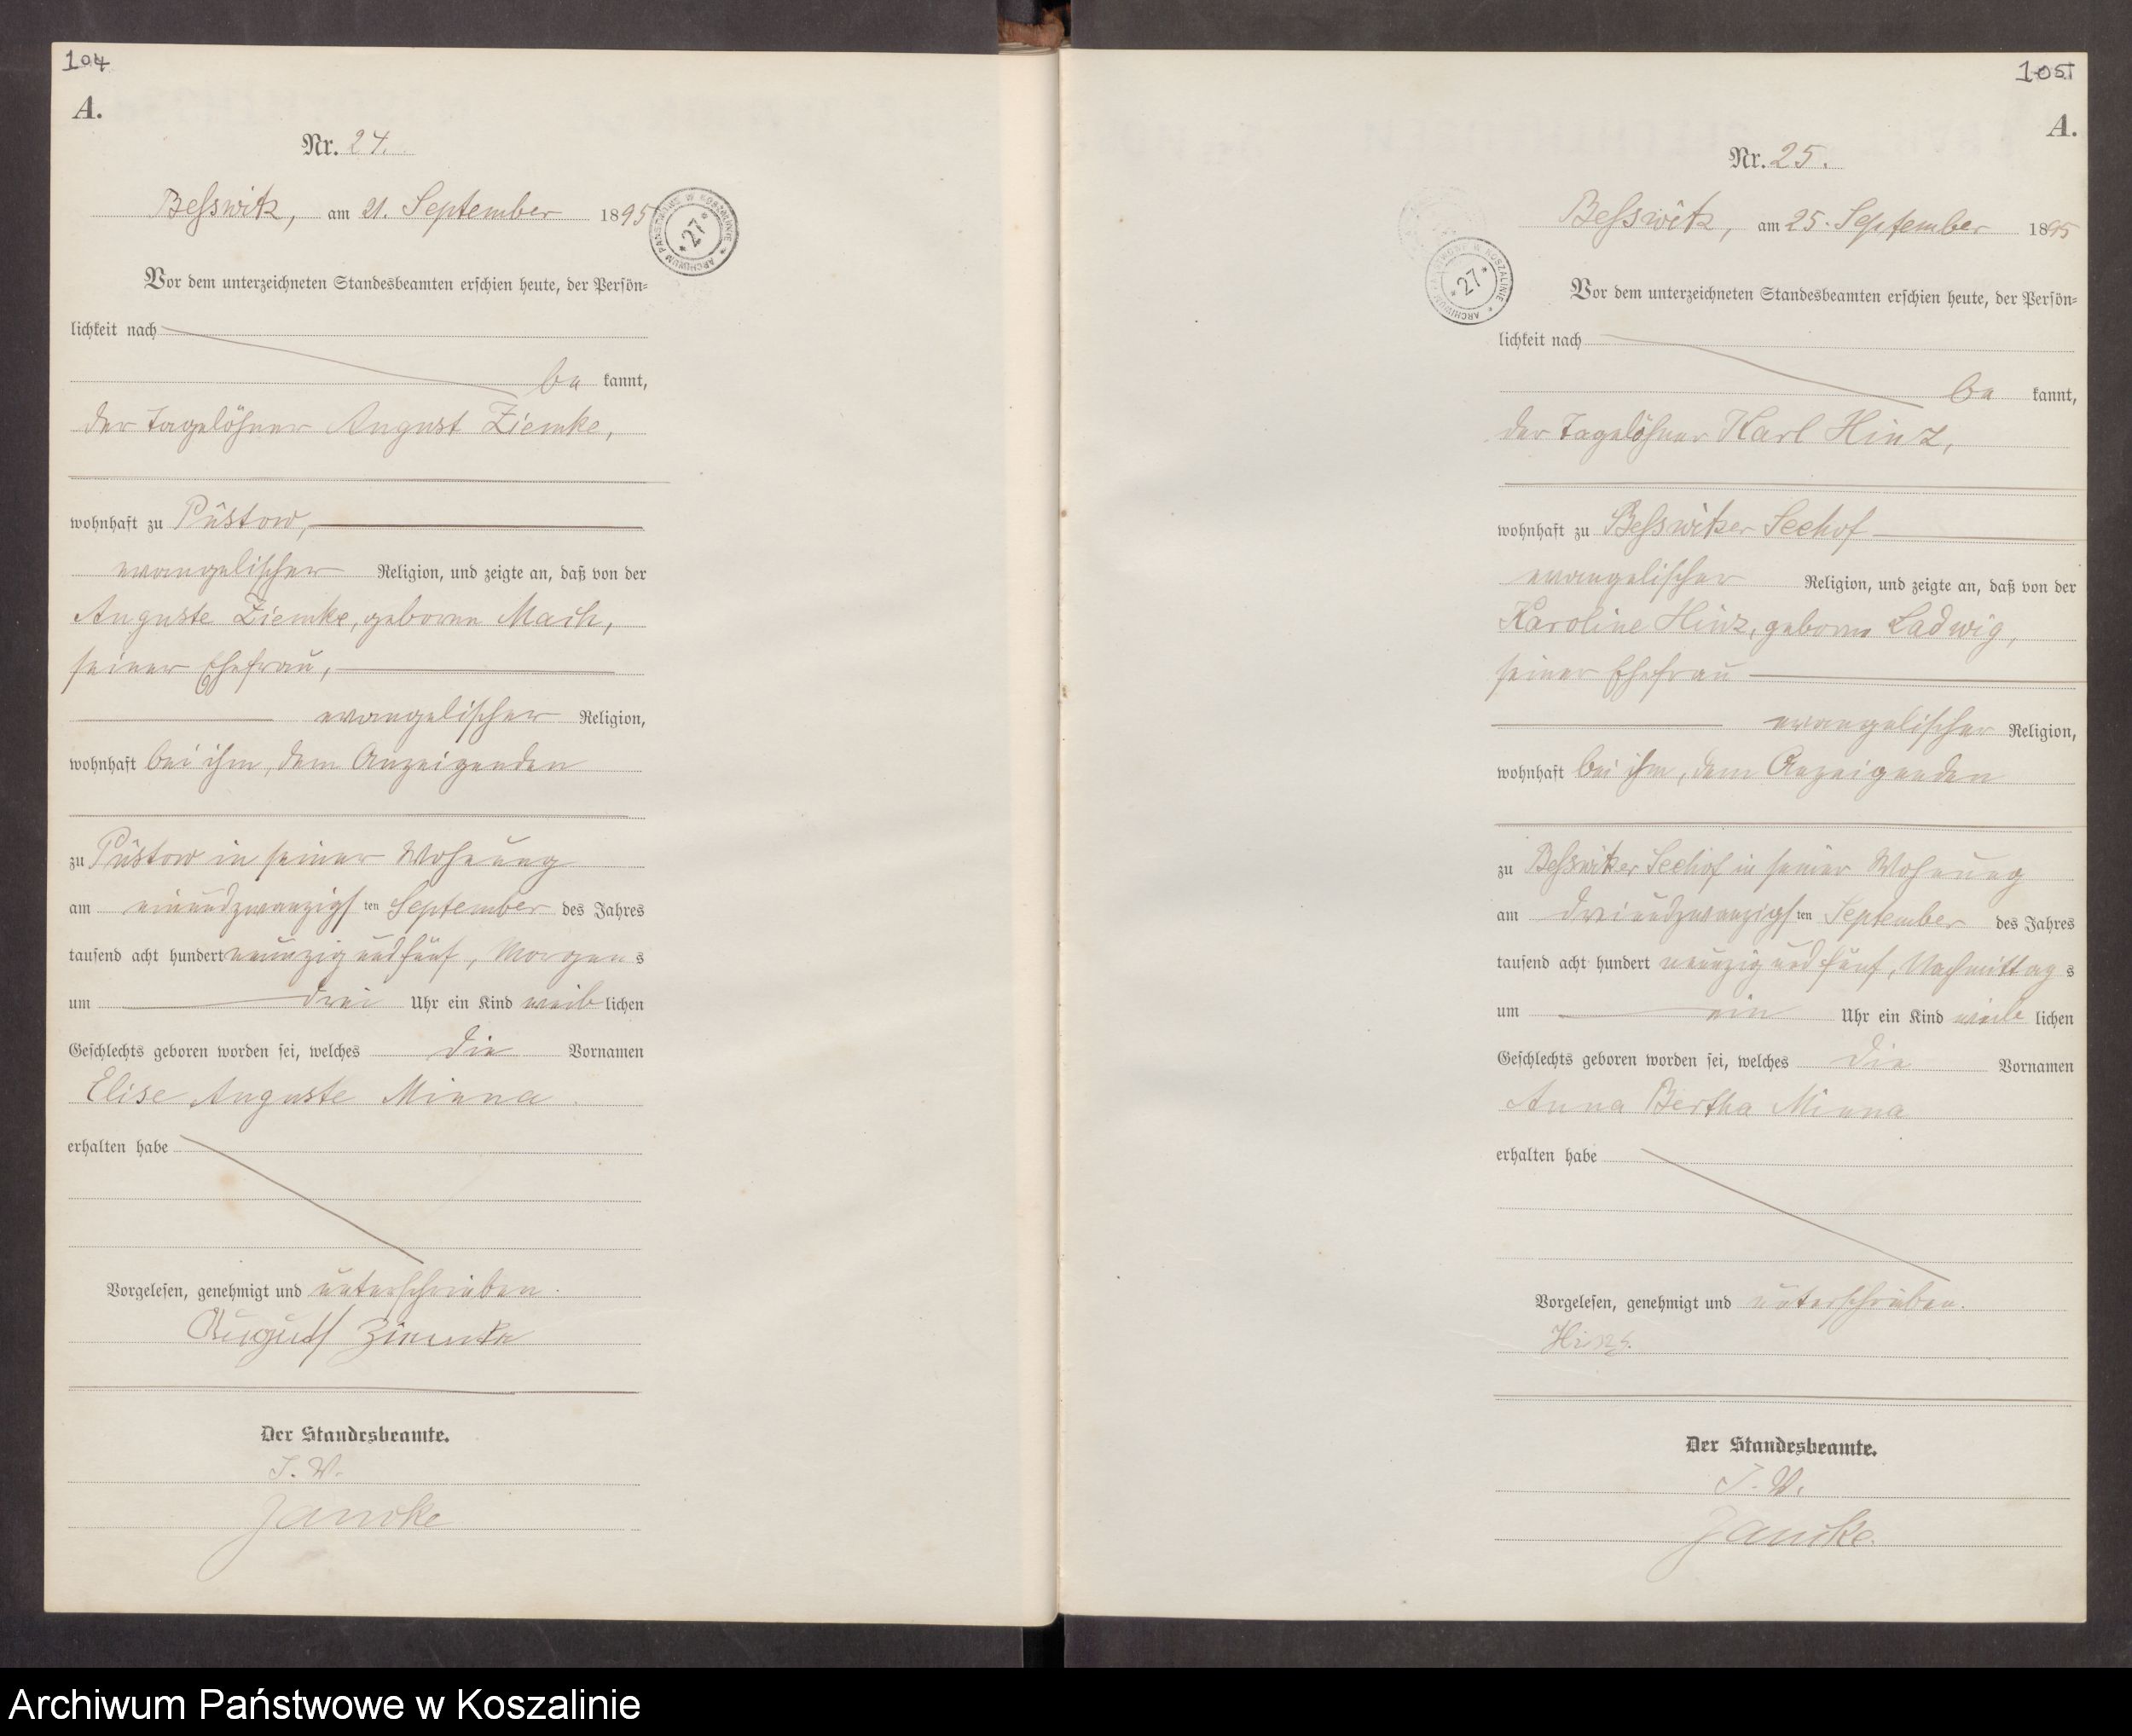 104
A.
Nr. 24.
Beßwitz, am 21. September 1895
ARCHIWUM PAŃSTWOWE W KOSZALINIE * 27 *
Vor dem unterzeichneten Standesbeamten erschien heute, der Persön-
lichkeit nach
be kannt,
der Tagelöhner August Ziemke,
wohnhaft zu Püstow,
evangelischer Religion, und zeigte an, daß von der
Auguste Ziemke, geborne Mach,
seiner Ehefrau,
evangelischer Religion,
wohnhaft bei ihm, dem Anzeigenden
zu Püstow in seiner Wohnung
am einundzwanzigsten September des Jahres
tausend acht hundert neunzig und fünf, Morgens
um drei Uhr ein Kind weiblichen
Geschlechts geboren worden sei, welches die Vornamen
Elise Auguste Minna.
erhalten habe
Vorgelesen, genehmigt und unterschrieben.
August Ziemke
Der Standesbeamte.
J. V.
Jancke
105
A.
Nr. 25.
Beßwitz, am 25. September 1895
ARCHIWUM PAŃSTWOWE W KOSZALINIE * 27 *
Vor dem unterzeichneten Standesbeamten erschien heute, der Persön-
lichkeit nach
be kannt,
der Tagelöhner Karl Hinz,
wohnhaft zu Beßwitzer Seehof
evangelischer Religion, und zeigte an, daß von der
Karoline Hinz, geborne Ladwig,
seiner Ehefrau
evangelischer Religion,
wohnhaft bei ihm, dem Anzeigenden
zu Beßwitzer Seehof in seiner Wohnung
am dreiundzwanzigsten September des Jahres
tausend acht hundert neunzig und fünf, Nachmittags
um ein Uhr ein Kind weiblichen
Geschlechts geboren worden sei, welches die Vornamen
Anna Bertha Minna
erhalten habe
Vorgelesen, genehmigt und unterschrieben.
Hinz.
Der Standesbeamte.
J. V.
Jancke.
Archiwum Państwowe w Koszalinie